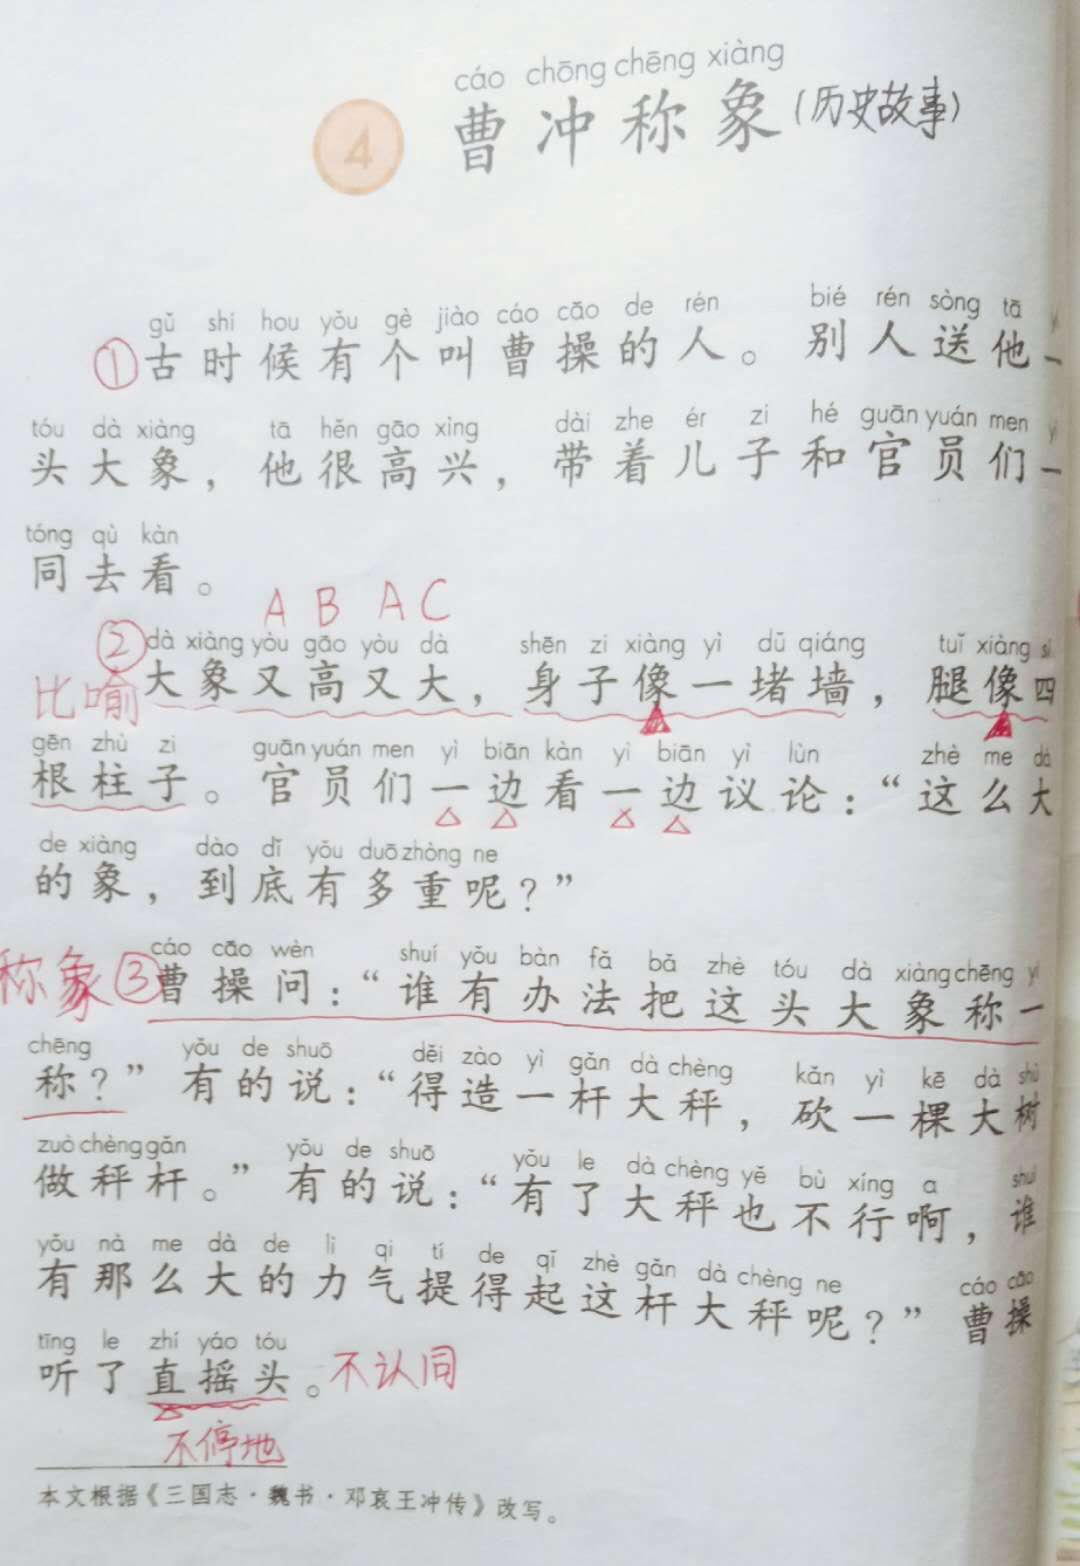 cáo chōng chēng xiàng
4 曹冲称象(历史故事)
gǔ shí hou yǒu gè jiào cáo cāo de rén bié rén sòng tā
①古时候有个叫曹操的人。别人送他一
tóu dà xiàng tā hěn gāo xìng dài zhe ér zi hé guān yuán men yì
头大象,他很高兴,带着儿子和官员们一
tóng qù kàn
同去看。
A B A C
dà xiàng yòu gāo yòu dà shēn zi xiàng yì dǔ qiáng tuǐ xiàng sì
比喻 ②大象又高又大,身子像一堵墙,腿像四
gēn zhù zi guān yuán men yì biān kàn yì biān yì lùn zhè me dà
根柱子。官员们一边看一边议论:“这么大
de xiàng dào dǐ yǒu duō zhòng ne
的象,到底有多重呢?”
cáo cāo wèn shuí yǒu bàn fǎ bǎ zhè tóu dà xiàng chēng yì
称象 ③曹操问:“谁有办法把这头大象称一
chēng yǒu de shuō děi zào yì gǎn dà chèng kǎn yì kē dà shù
称?”有的说:“得造一杆大秤,砍一棵大树
zuò chèng gǎn yǒu de shuō yǒu le dà chèng yě bù xíng a shuí
做秤杆。”有的说:“有了大秤也不行啊,谁
yǒu nà me dà de lì qi tí de qǐ zhè gǎn dà chèng ne cáo cāo
有那么大的力气提得起这杆大秤呢?”曹操
tīng le zhí yáo tóu
听了直摇头。不认同
不停地
本文根据《三国志·魏书·邓哀王冲传》改写。